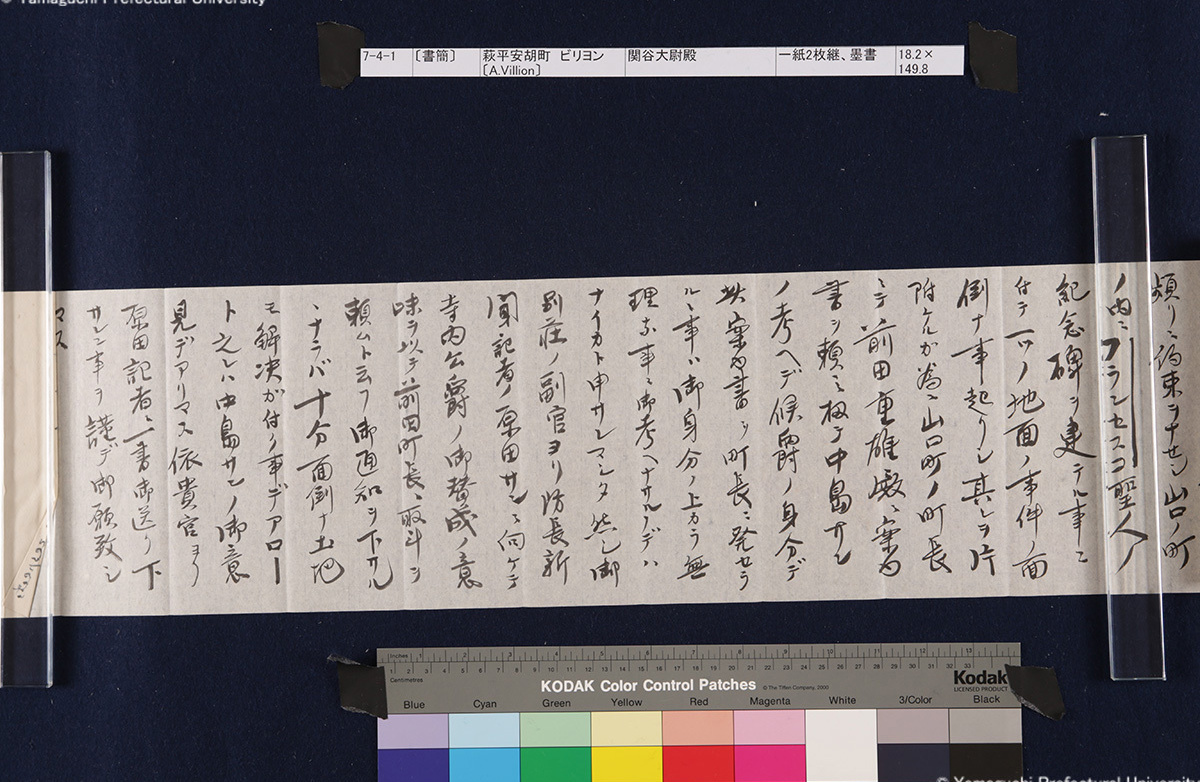 © Yamaguchi Prefectural University
7-4-1 〔書簡〕 萩平安胡町 ビリヨン 〔A.Villion〕 関谷大尉殿 一紙2枚継、墨書 18.2× 149.8
頻リニ約束ヲナセシ山口ノ町
ノ内ニフランセスコ聖人ノ
紀念碑ヲ建テル事ニ
付テ一ツノ地面ノ事件ノ面
倒ナ事起リシ其レヲ片
附ケルガ為ニ山口町ノ町長
ニテ前田重雄殿ニ案内
書ヲ頼ミ板テ中島サン
ノ考ヘデ侯爵ノ身分デ
此案内書ヲ町長ニ発セラ
ルル事ハ御身分ノ上カラ無
理ナ事ニ御考ヘナサルデハ
ナイカト申サレマシタ然シ御
別荘ノ副官ヨリ防長新
聞記者ノ原田サンニ向ケテ
寺内公爵ノ御賛成ノ意
味ヲ以テ前田町長ニ取斗ヲ
頼ムト云フ御通知ヲ下サル
ニナラバ十分面倒ナ土地
モ解决ガ付ノ事デアロー
ト之レハ中島サンノ御意
見デアリマス依貴官ヨリ
原田記者ニ一書御送リ下
サレン事ヲ謹デ御願致シ
マス
Inches
Centimetres
KODAK Color Control Patches © The Tiffen Company, 2000
Kodak
LICENSED PRODUCT
Blue Cyan Green Yellow Red Magenta White 3/Color Black
© Yamaguchi Prefectural University